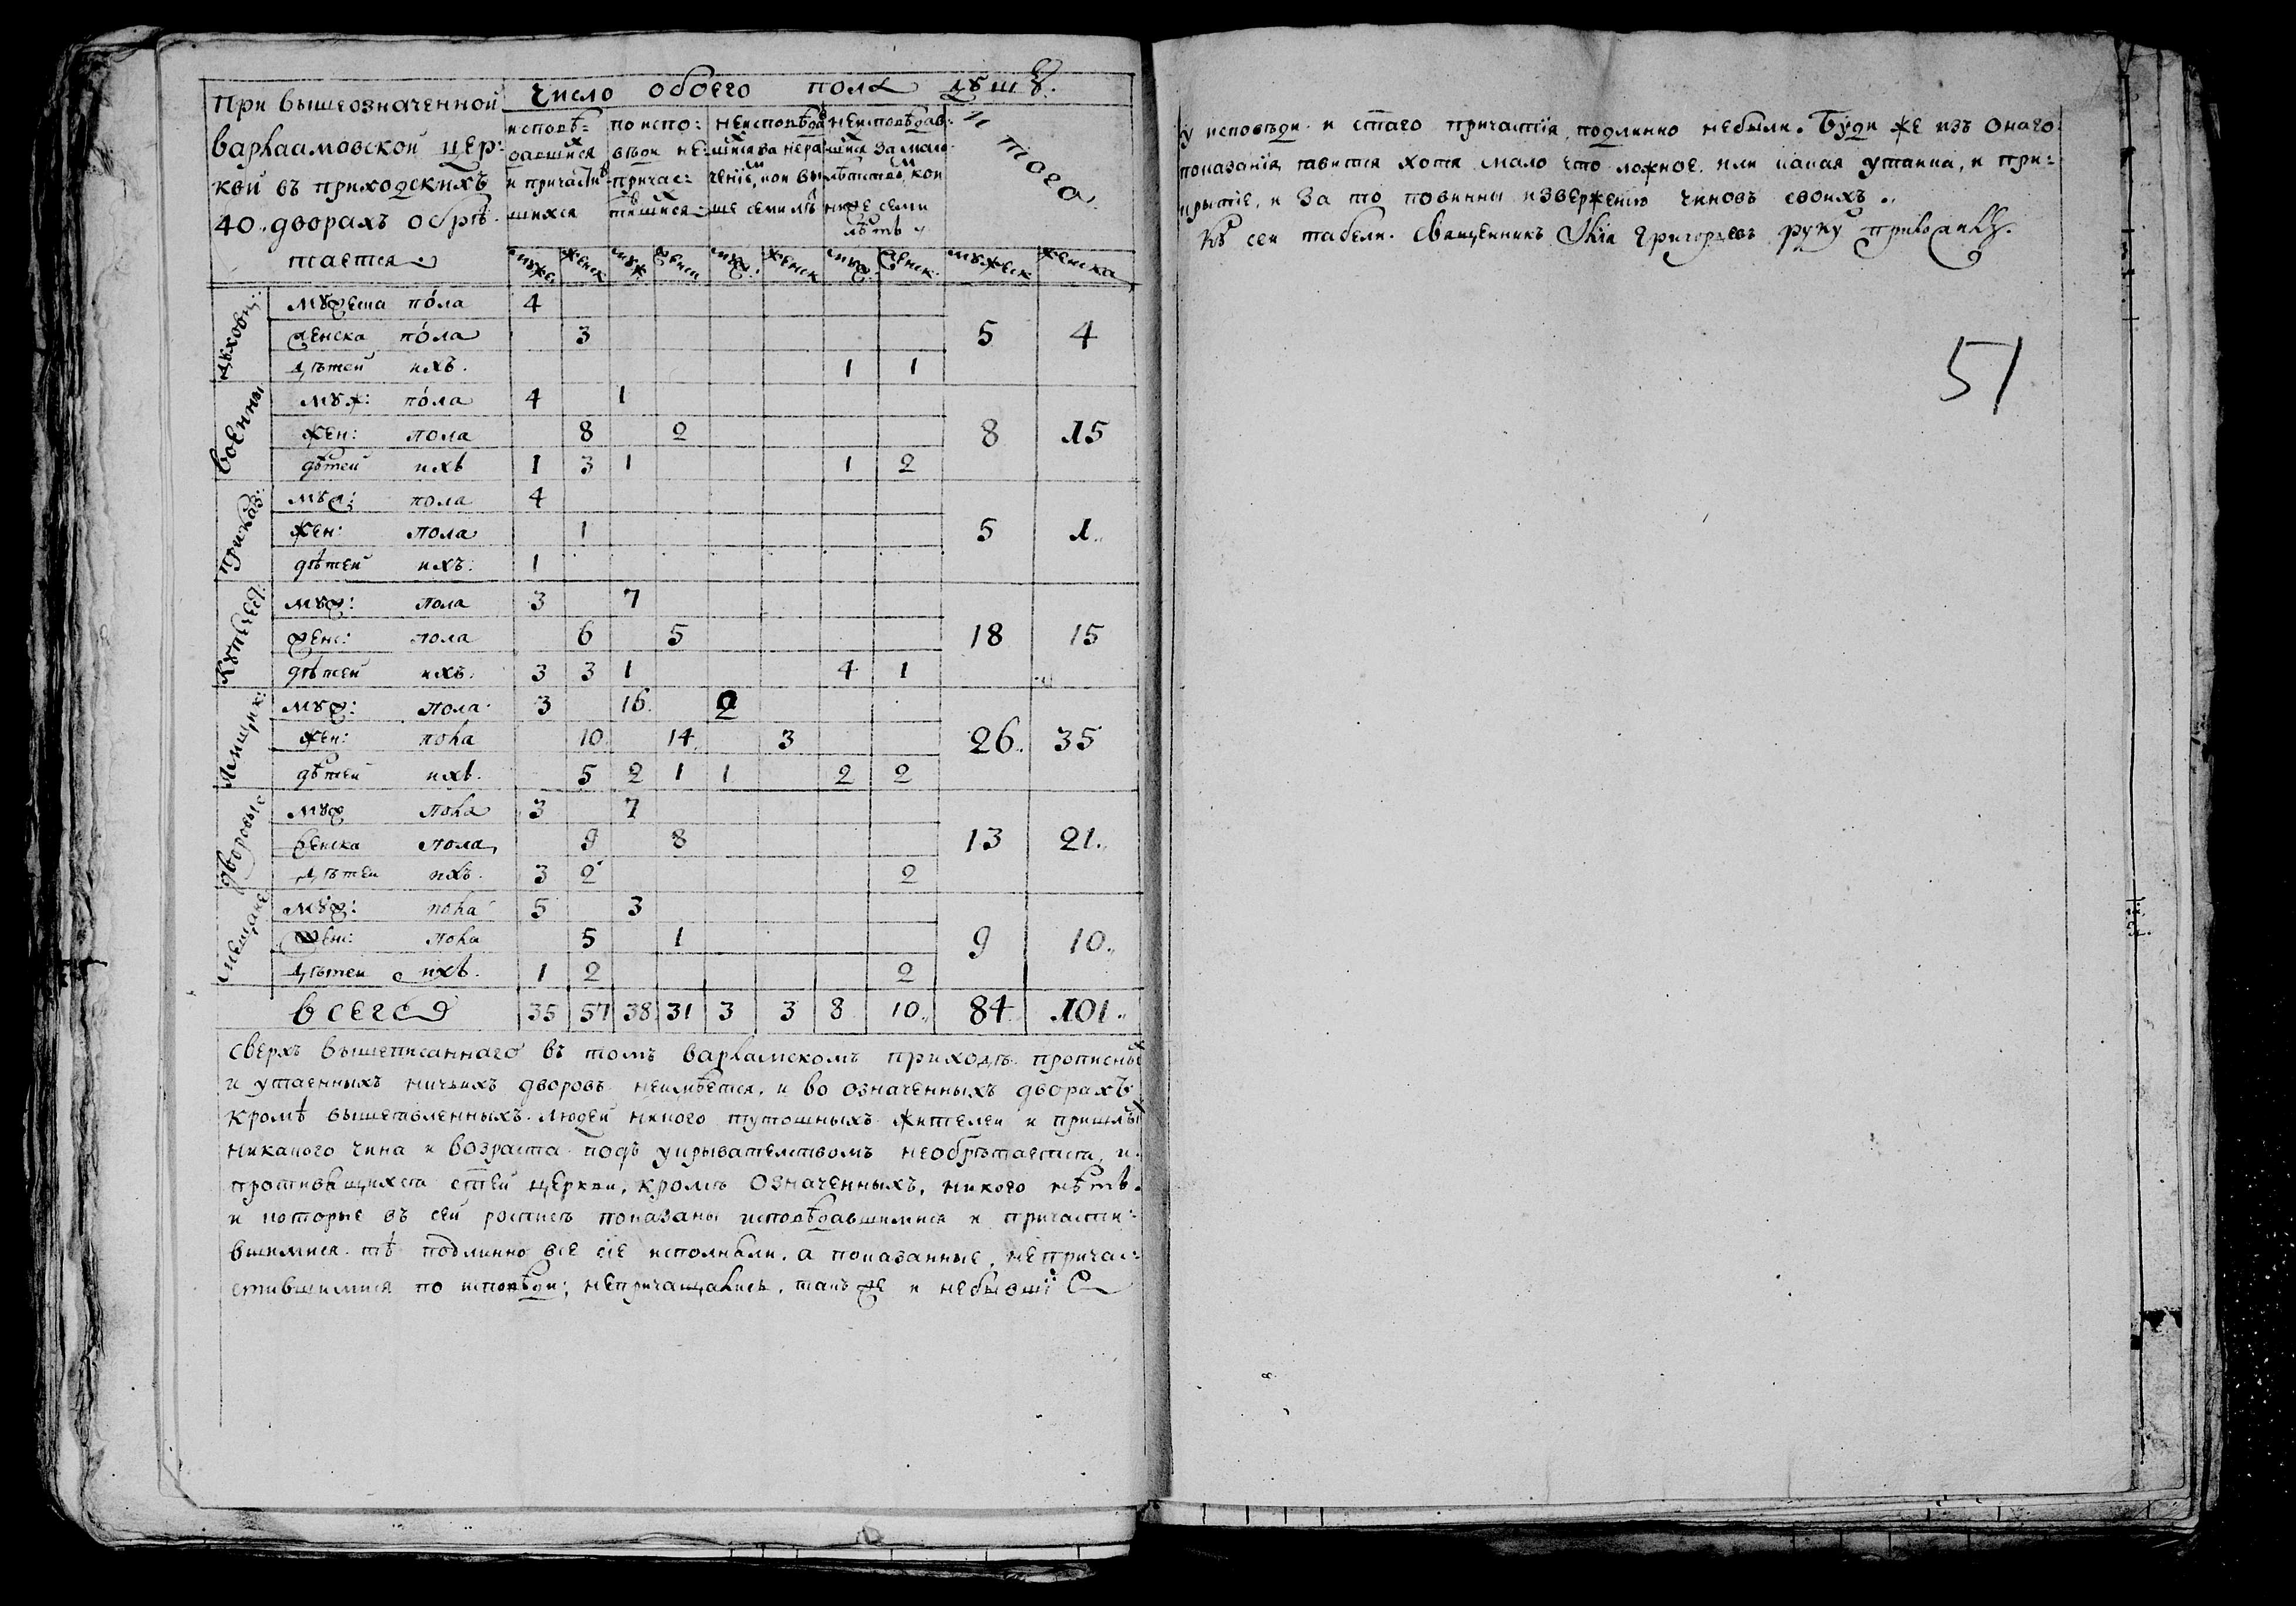 При вышеозначенной
варлаамовской цер:
кви въ приходскихъ
40. дворахъ обрѣ:
тается.
Число обоего пола душъ.
исповѣ=
давшихся
и причастив
шихся
по испо:
вѣди не
причас=
тившихся
неисповѣда
вшихся за нера
ченіем, кои вы
ше семи лѣтъ
неисповѣдав:
шихся за мало
лѣтством, кои
ниже семи
лѣтъ
и того
мужс женск муж женск муж: женск муж: женск. мужеск женска
духовны:
мужеска пола 4
женска пола 3 5 4
дѣтей ихъ. 1 1
военны
муж: пола 4 1
жен: пола 8 2 8 15
дѣтей ихъ 1 3 1 1 2
приказ:
муж: пола 4
жен: пола 1 5 1.
дѣтей ихъ: 1
купчед:
муж: пола 3 7
женс: пола 6 5 18 15
дѣтей ихъ. 3 3 1 4 1
Ямщик:
муж: пола 3 16. 2
жен: пола 10. 14. 3 26. 35
дѣтей ихъ. 5 2 1 1 2 2
дворовые
муж пола 3 7
женска пола 9 8 13 21.
дѣтей ихъ. 3 2 2
мещане
муж: пола 5 3
женс: пола 5 1 9 10.
дѣтей ихъ. 1 2 2
всего 35 57 38 31 3 3 8 10. 84 101.
сверхъ вышеписаннаго въ томъ варламскомъ приходѣ прописных
и утаенныхъ ничьихъ дворовъ неимѣется, и во означенныхъ дворахъ
кромѣ вышеявленныхъ людей никого тутошныхъ жителей и пришлых
никакого чина и возраста подъ укрывательствомъ необрѣтается, и
противящихся стѣй церкви, кромѣ означенныхъ, никого нѣтъ.
и которые въ сей росписѣ показаны исповѣдавшимися и причасти:
вшимися. тѣ подлинно все сіе исполняли. а показанные, непричас:
стившимися по исповѣди; непричащались, такъ же и небывшіе
у исповѣди и стаго причастія подлинно небыли. Буди же изъ онаго
показанія явится хотя мало что ложное. или какая утайка, и при=
крытіе, и за то повинны изверженію чиновъ своихъ.
Къ сей табели. Священникъ Илія Григорьевъ руку приложилъ.
51